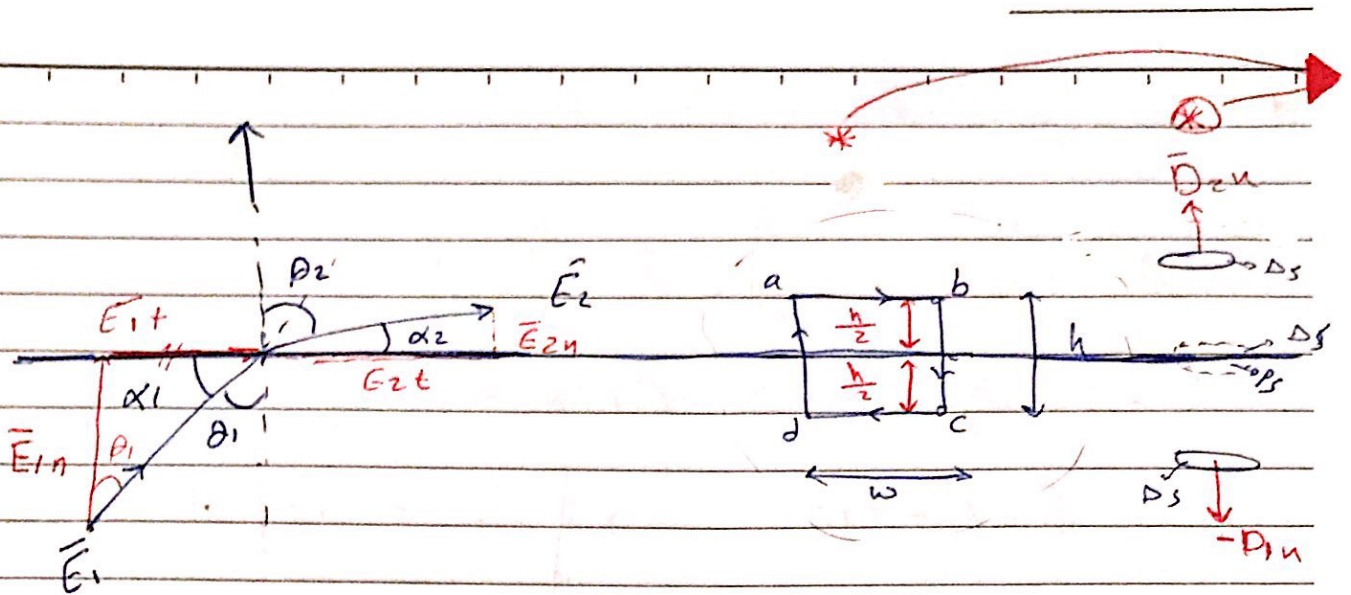 *
*
D̄₂n
θ₂
Ē₂
a
b
Δs
Ē₁t
α₂
Ē₂n
h/2
h
Δs
E₂t
h/2
ρs
α1
θ1
d
c
Ē₁n
θ₁
w
Δs
-D₁n
Ē₁